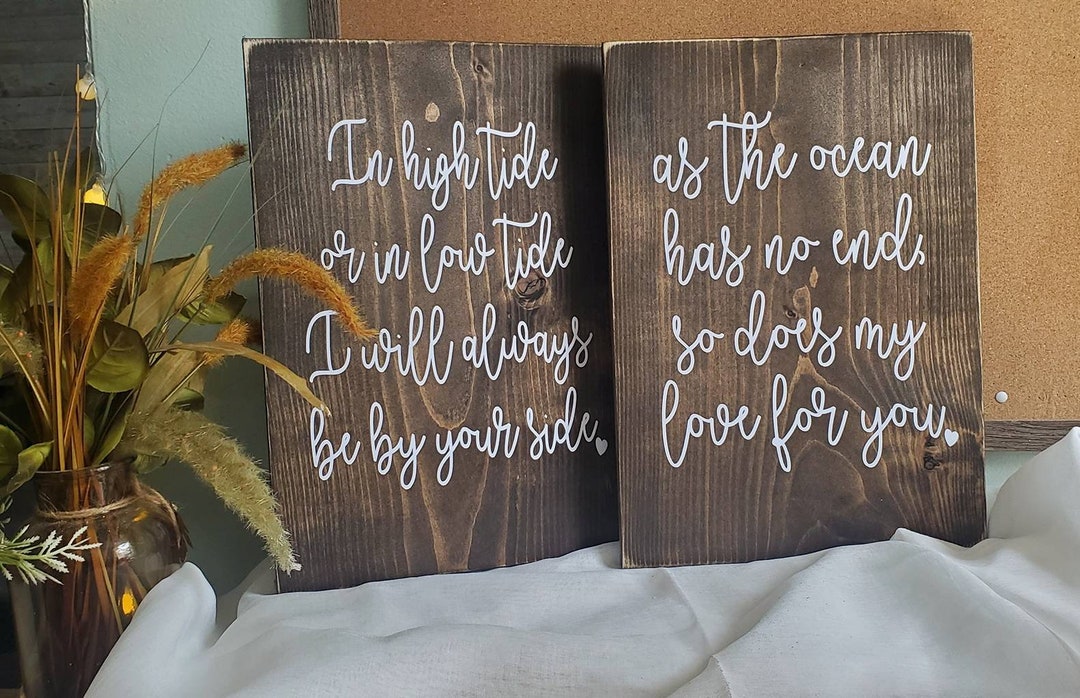 In high tide
or in low tide
I will always
be by your side.
as the ocean
has no end,
so does my
love for you.